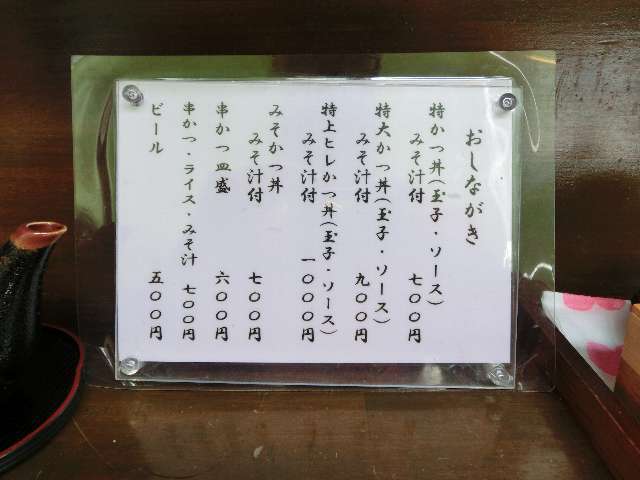 おしながき
特かつ丼(玉子・ソース)
みそ汁付 七〇〇円
特大かつ丼(玉子・ソース)
みそ汁付 九〇〇円
特上ヒレかつ丼(玉子・ソース)
みそ汁付 一〇〇〇円
みそかつ丼
みそ汁付 七〇〇円
串かつ皿盛 六〇〇円
串かつ・ライス・みそ汁 七〇〇円
ビール 五〇〇円